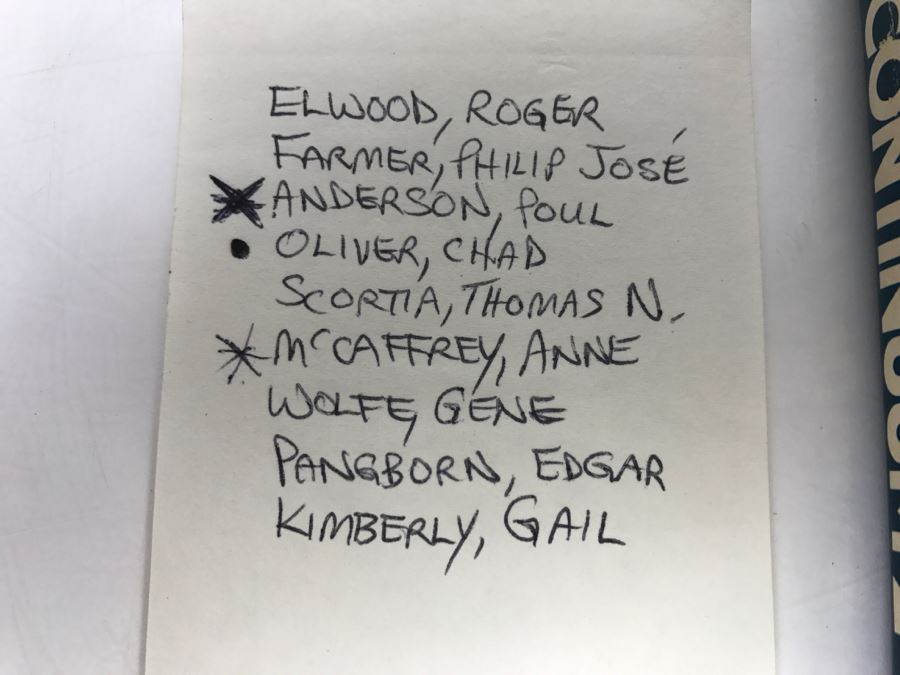 ELWOOD, ROGER
FARMER, PHILIP JOSÉ
ANDERSON, POUL
OLIVER, CHAD
SCORTIA, THOMAS N.
McCAFFREY, ANNE
WOLFE, GENE
PANGBORN, EDGAR
KIMBERLY, GAIL